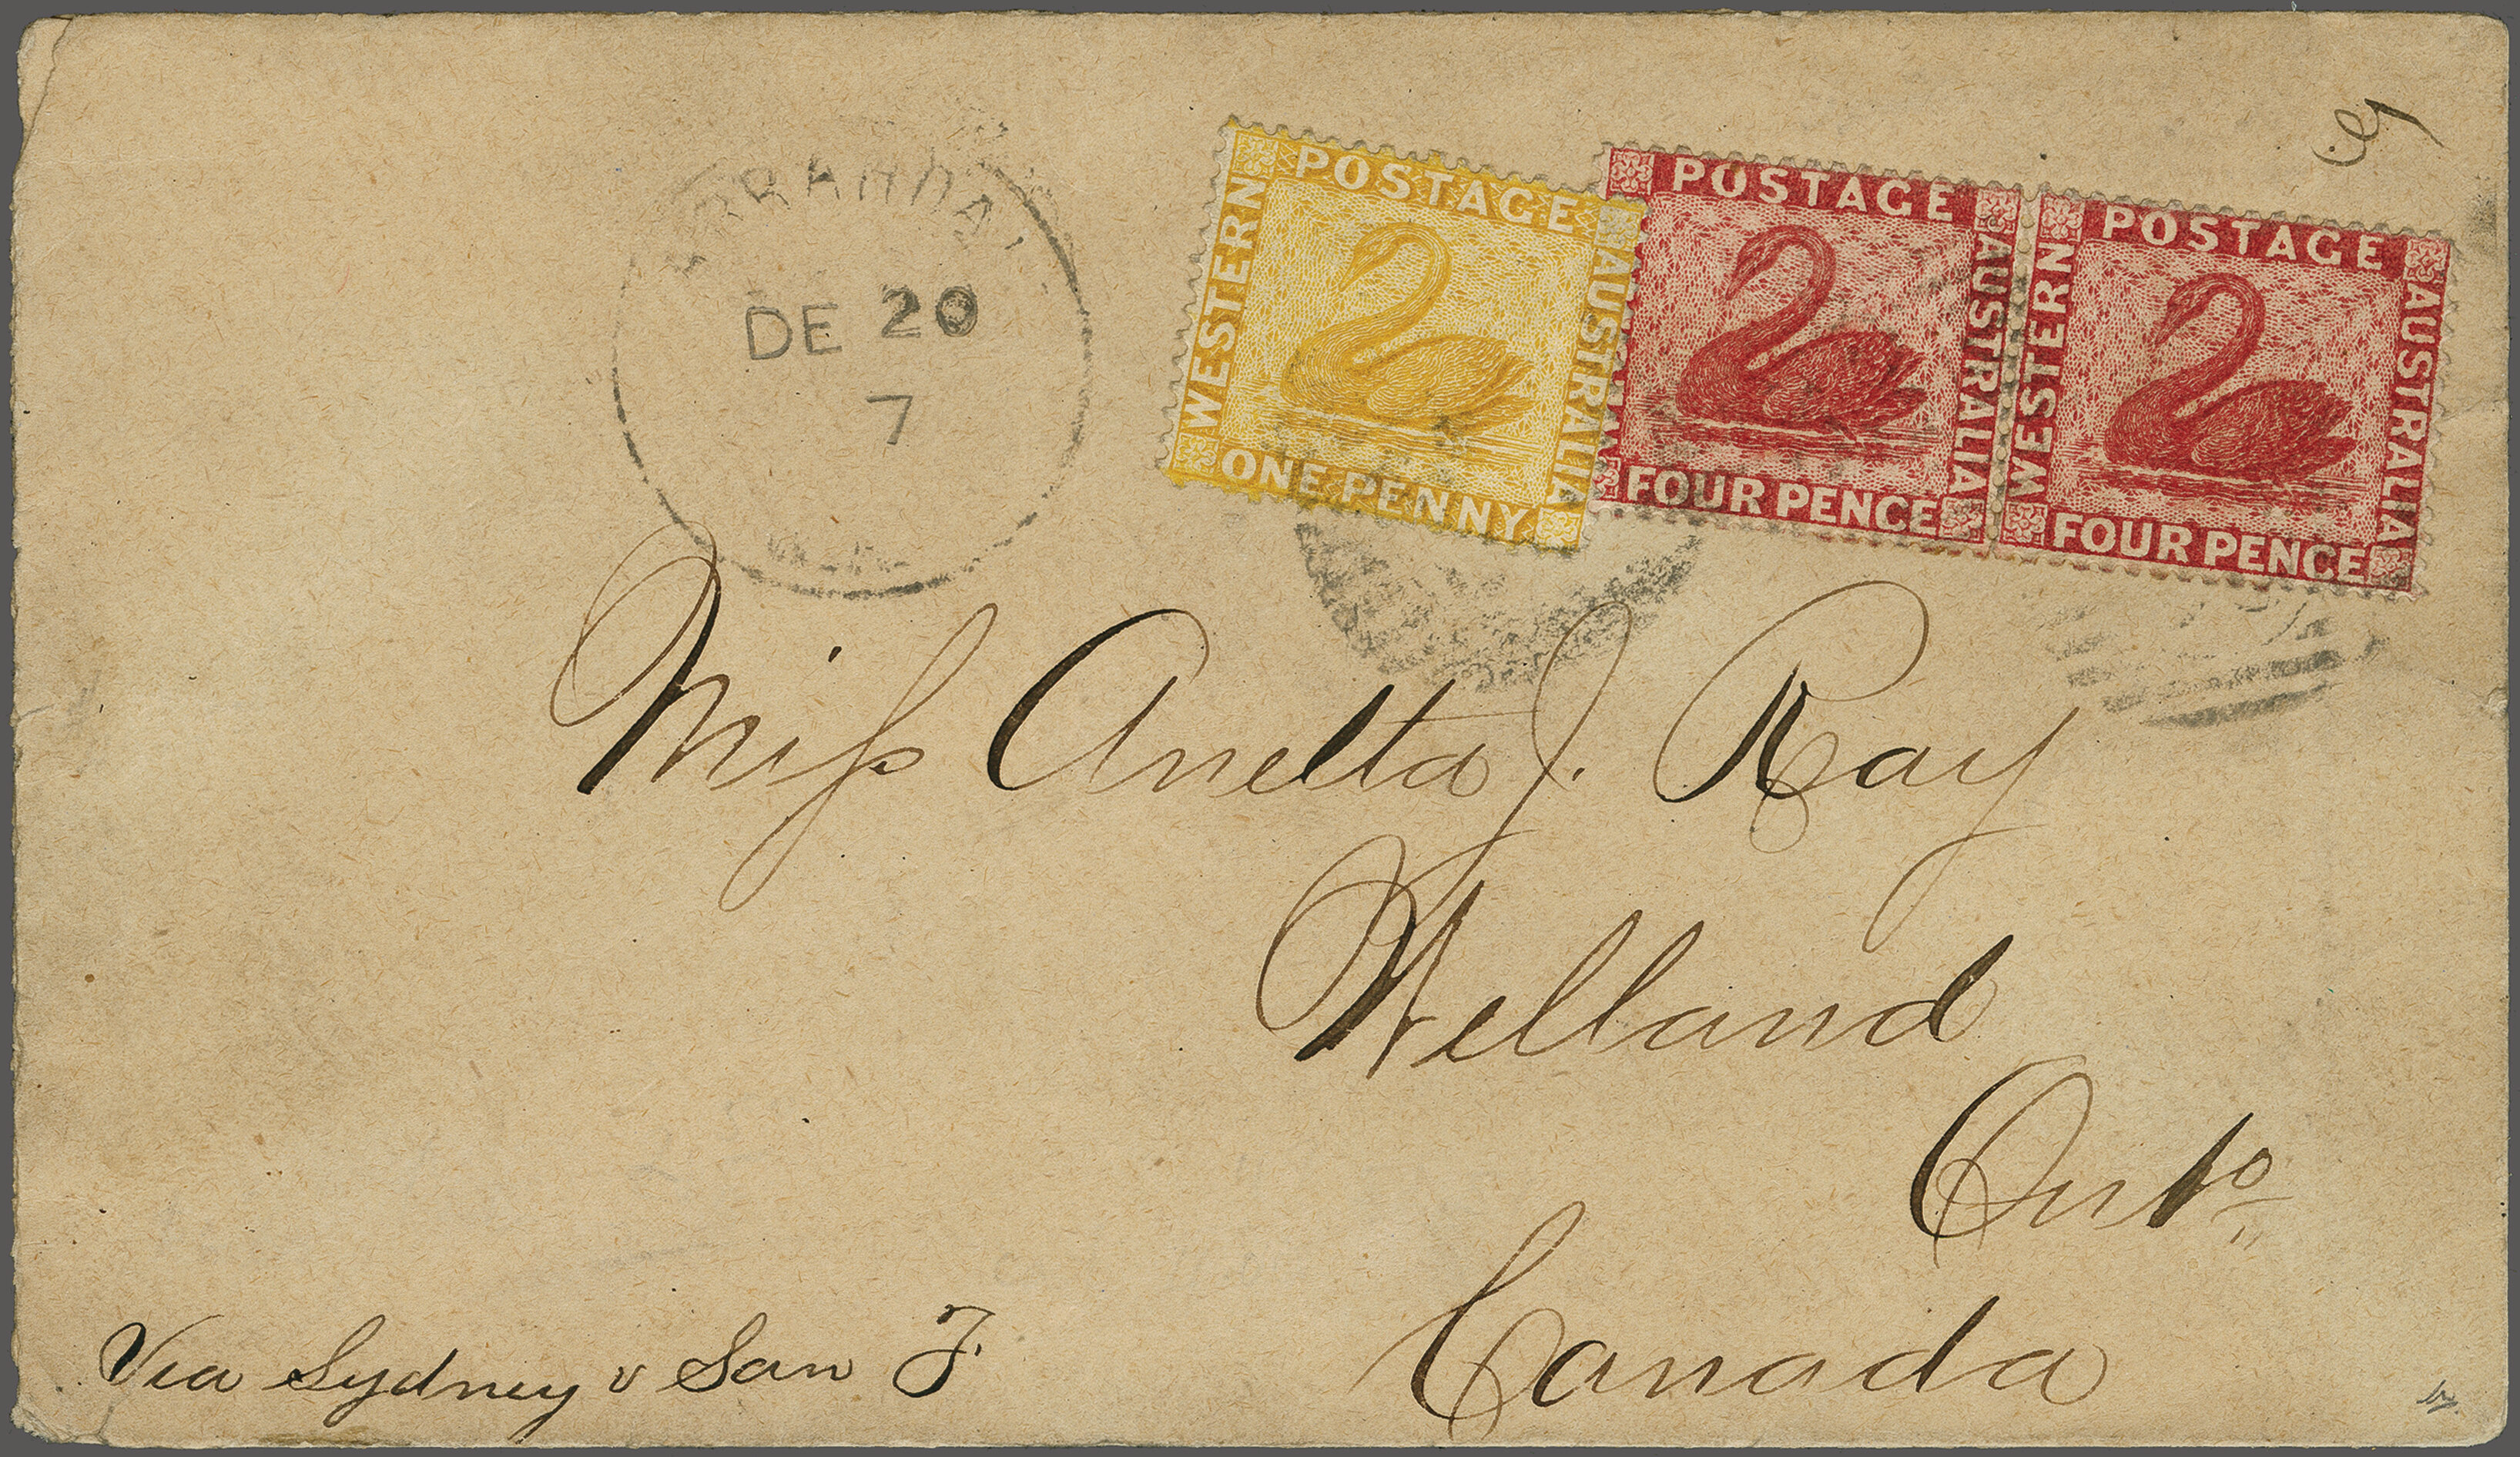 DE 20
7
POSTAGE
WESTERN
AUSTRALIA
ONE PENNY
POSTAGE
AUSTRALIA
FOUR PENCE
POSTAGE
WESTERN
AUSTRALIA
FOUR PENCE
Miss Anetta J. Ray
Welland
Onto
Canada
Via Sydney v San F